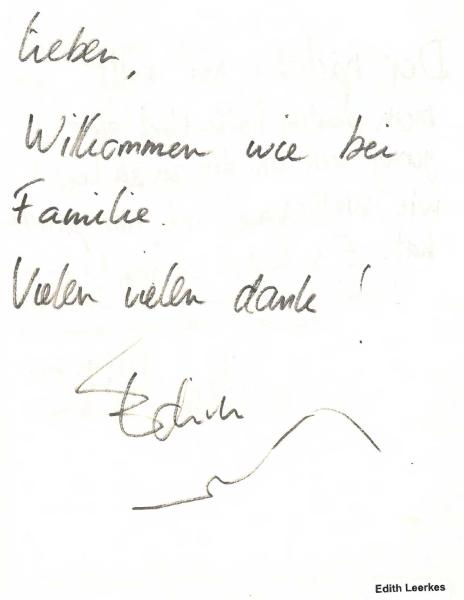 Lieben,
Willkommen wie bei
Familie.
Vielen vielen dank!
Edith
Edith Leerkes